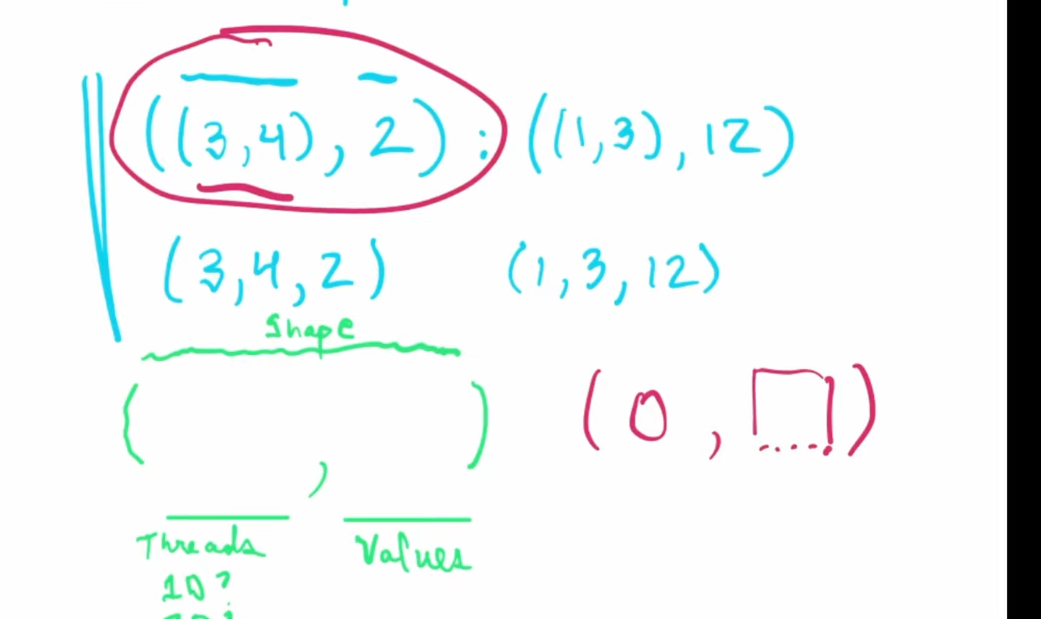 ((3,4), 2) : ((1,3), 12)
(3,4,2) (1,3,12)
Shape
( , ) (0, )
Threads Values
1D?